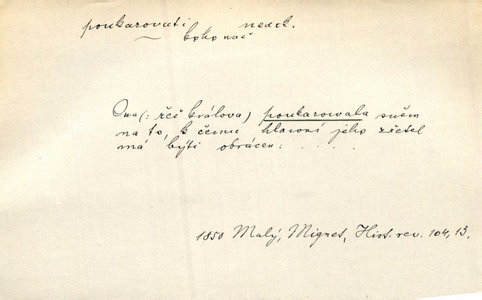 poukazovati nedok.
koho nač
Ona (: řeč králova) poukazovala sněm
na to, k čemu hlavní jeho zřetel
má býti obrácen: . . . . .
1850 Malý, Mignet, Hist. rev. 104, 13.